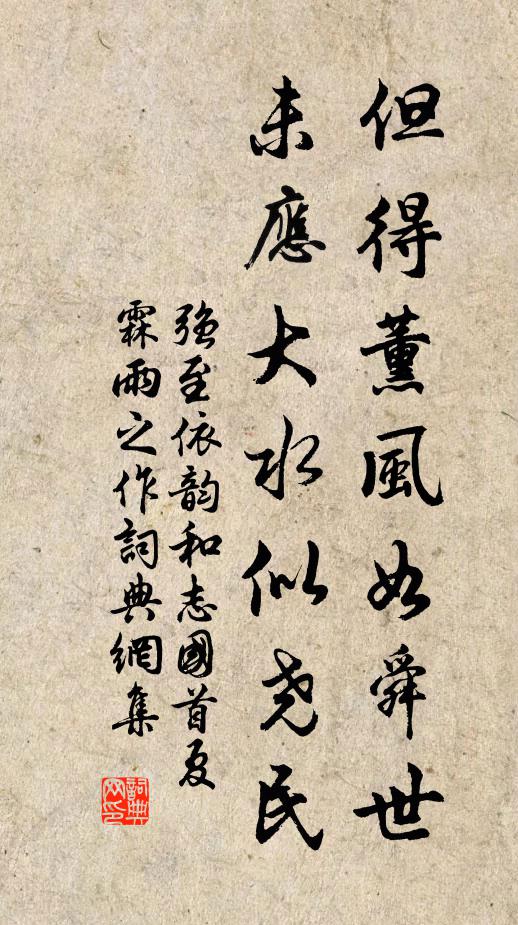 但得薰風如舜世
未應大水似尧民
强至依韵和志國首夏
霖雨之作詞典網集
詞典网印